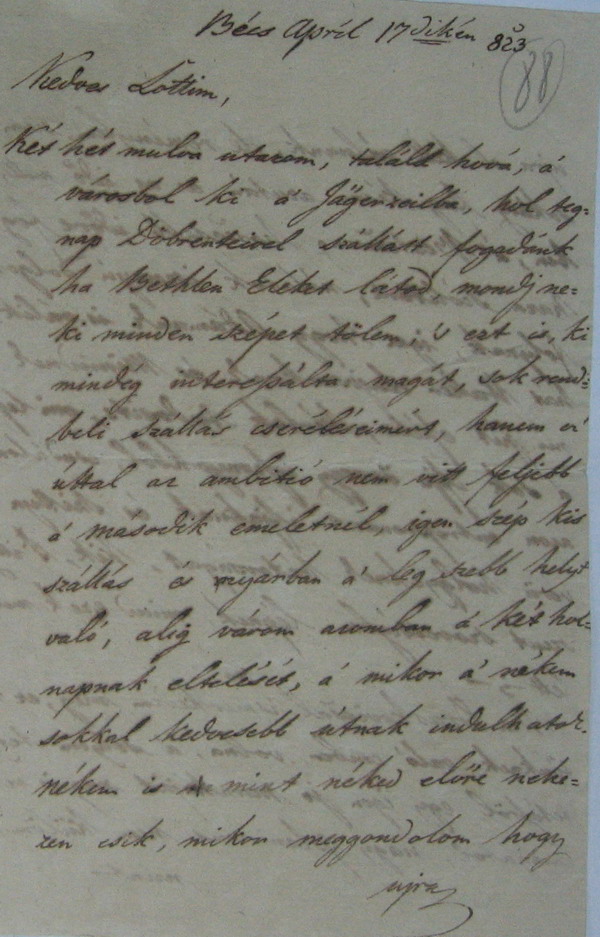 Bécs Apríl 17dikén 823
88
Kedves Lottim,
Két hét mulva utazom, találd hová, á
városbol ki á Jägerzeilba, hol teg=
nap Döbrenteivel szállást fogadánk
ha Bethlen Eleket látod mondj ne=
ki minden szépet tölem, 's ezt is, ki
mindég interessálta magát, sok rend=
beli szállás cseréléseimért, hanem
úttal az ambitió nem vitt feljebb
á második emeletnél, igen szép kis
szállás és nyárban á leg szebb helyt
való, alig várom azomban á két hol=
napnak eltelését, á mikor á nékem
sokkal kedvesebb útnak indulhatok.
nékem is mint néked elöre nehe=
zen esik, mikor meggondolom hogy
ujra